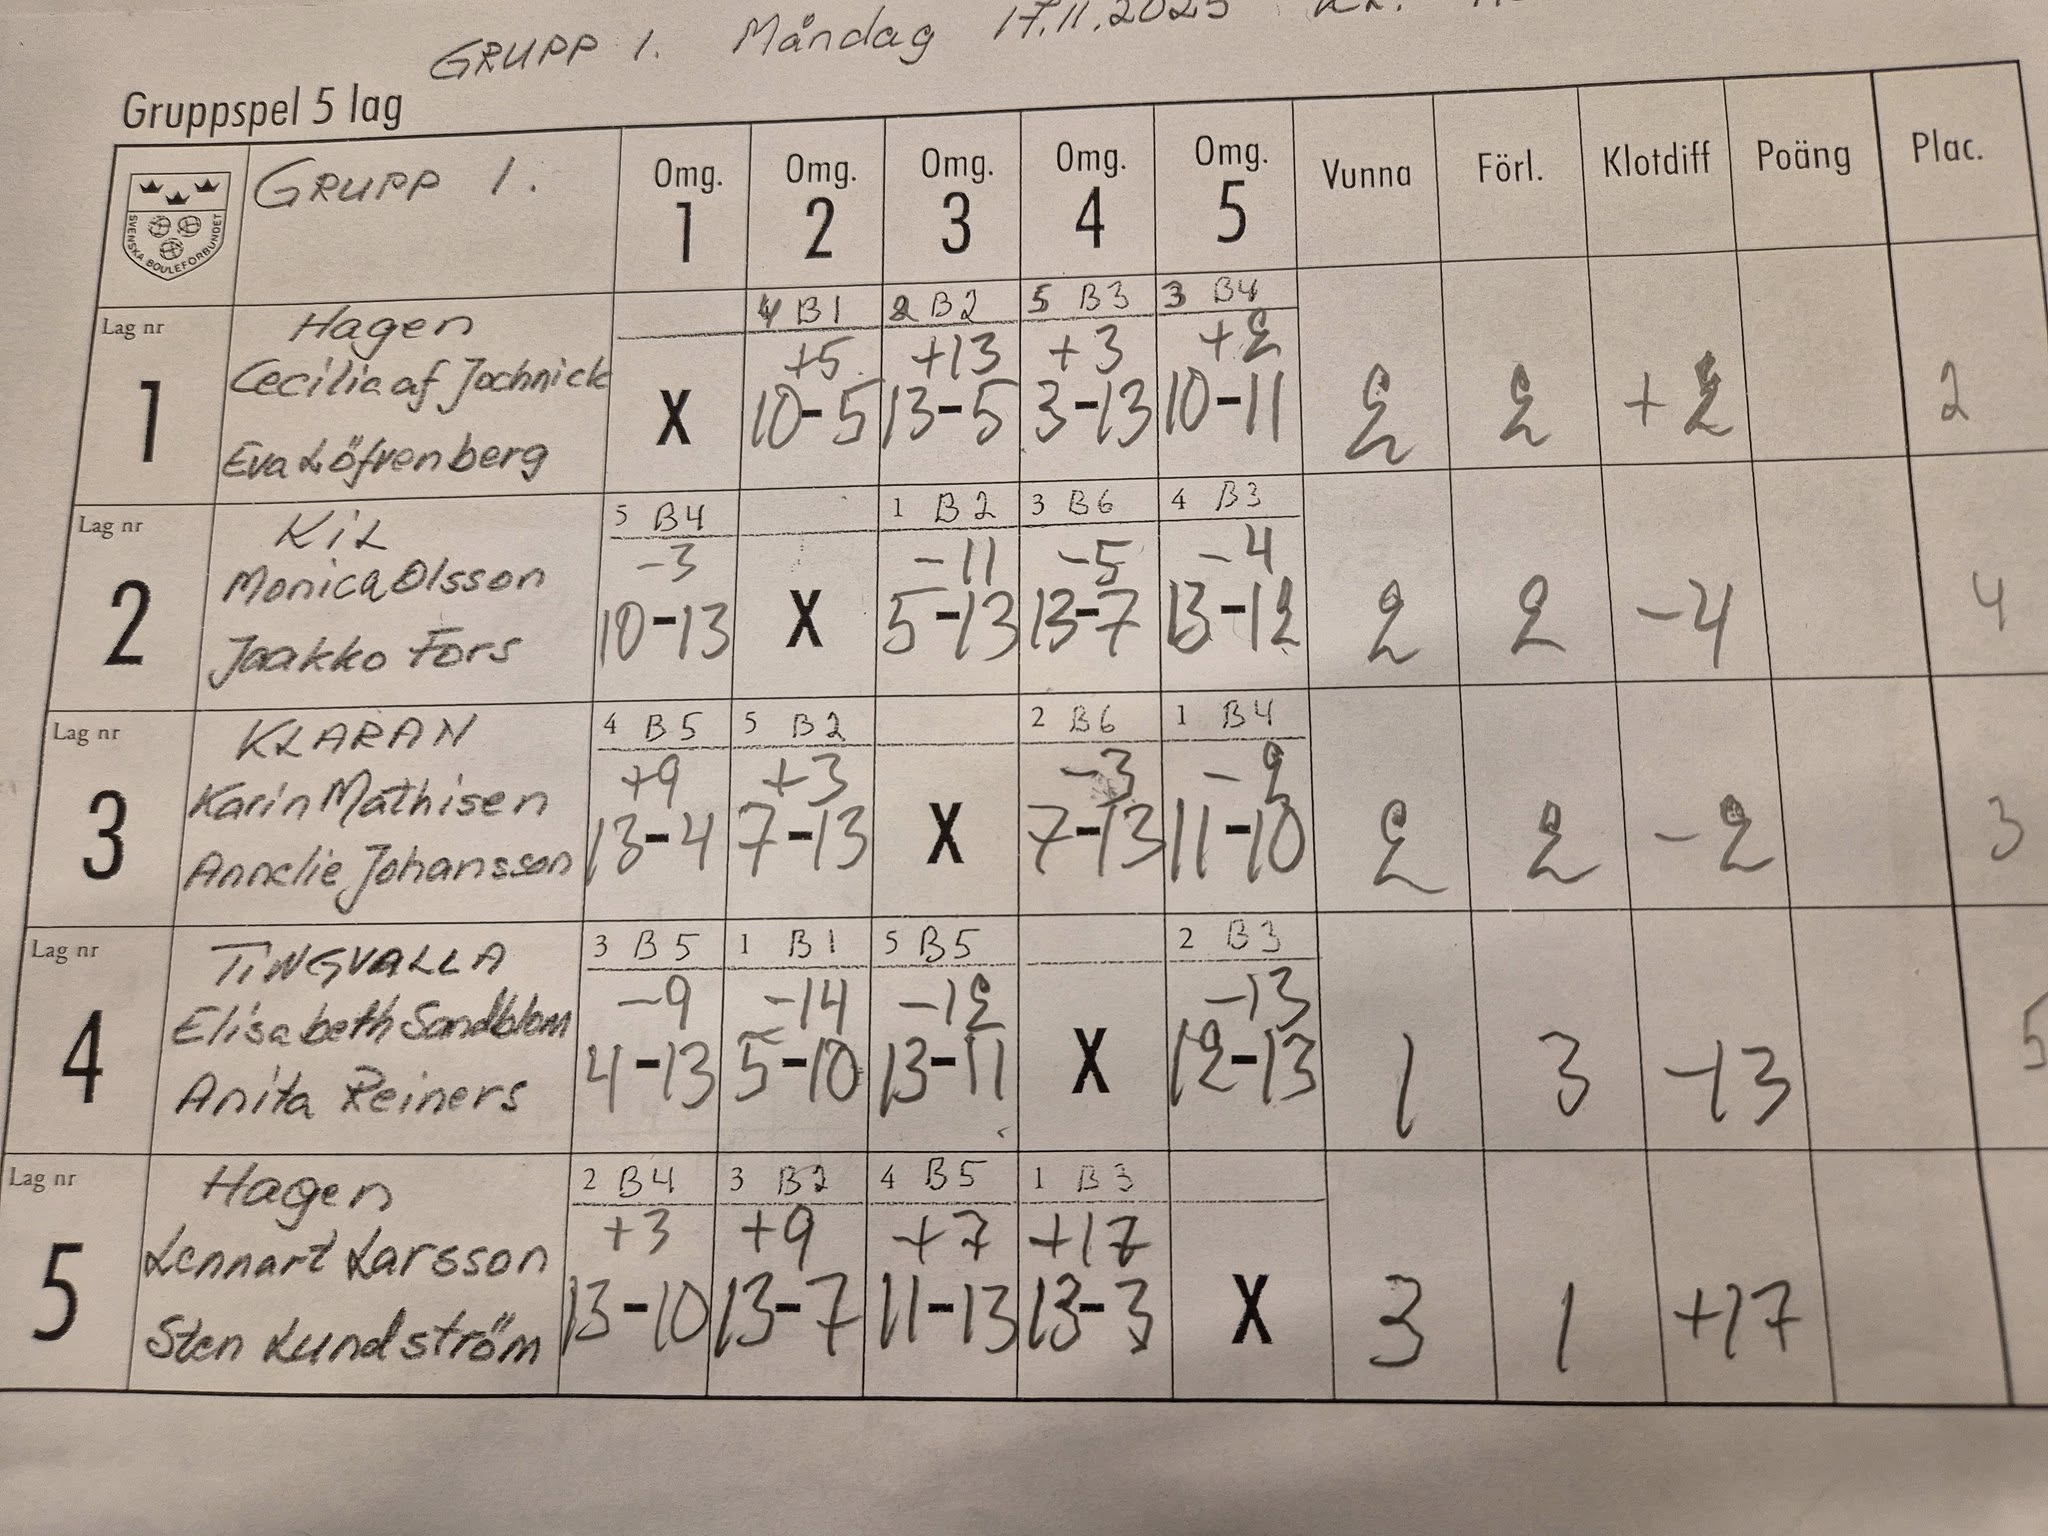 GRUPP 1. Måndag 17.11.2025
Gruppspel 5 lag
SVENSKA BOULEFÖRBUNDET
GRUPP 1.
Omg. 1 Omg. 2 Omg. 3 Omg. 4 Omg. 5 Vunna Förl. Klotdiff Poäng Plac.
4 B1 2 B2 5 B3 3 B4
Lag nr Hagen +5 +13 +3 +2
1 Cecilia af Jochnick X 10-5 13-5 3-13 10-11 2 2 +2 2
Eva Löfvenberg
5 B4 1 B2 3 B6 4 B3
Lag nr KiL -3 -11 -5 -4
2 Monica Olsson 10-13 X 5-13 13-7 13-12 2 2 -4 4
Jaakko Fors
4 B5 5 B2 2 B6 1 B4
Lag nr KLARAN +9 +3 -3 -2
3 Karin Mathisen 13-4 7-13 X 7-13 11-10 2 2 -2 3
Annelie Johansson
3 B5 1 B1 5 B5 2 B3
Lag nr TINGVALLA -9 -14 -12 -13
4 Elisabeth Sandblom 4-13 5-10 13-11 X 12-13 1 3 -13 5
Anita Reiners
2 B4 3 B2 4 B5 1 B3
Lag nr Hagen +3 +9 +7 +17
5 Lennart Larsson 13-10 13-7 11-13 13-3 X 3 1 +17
Sten Lundström